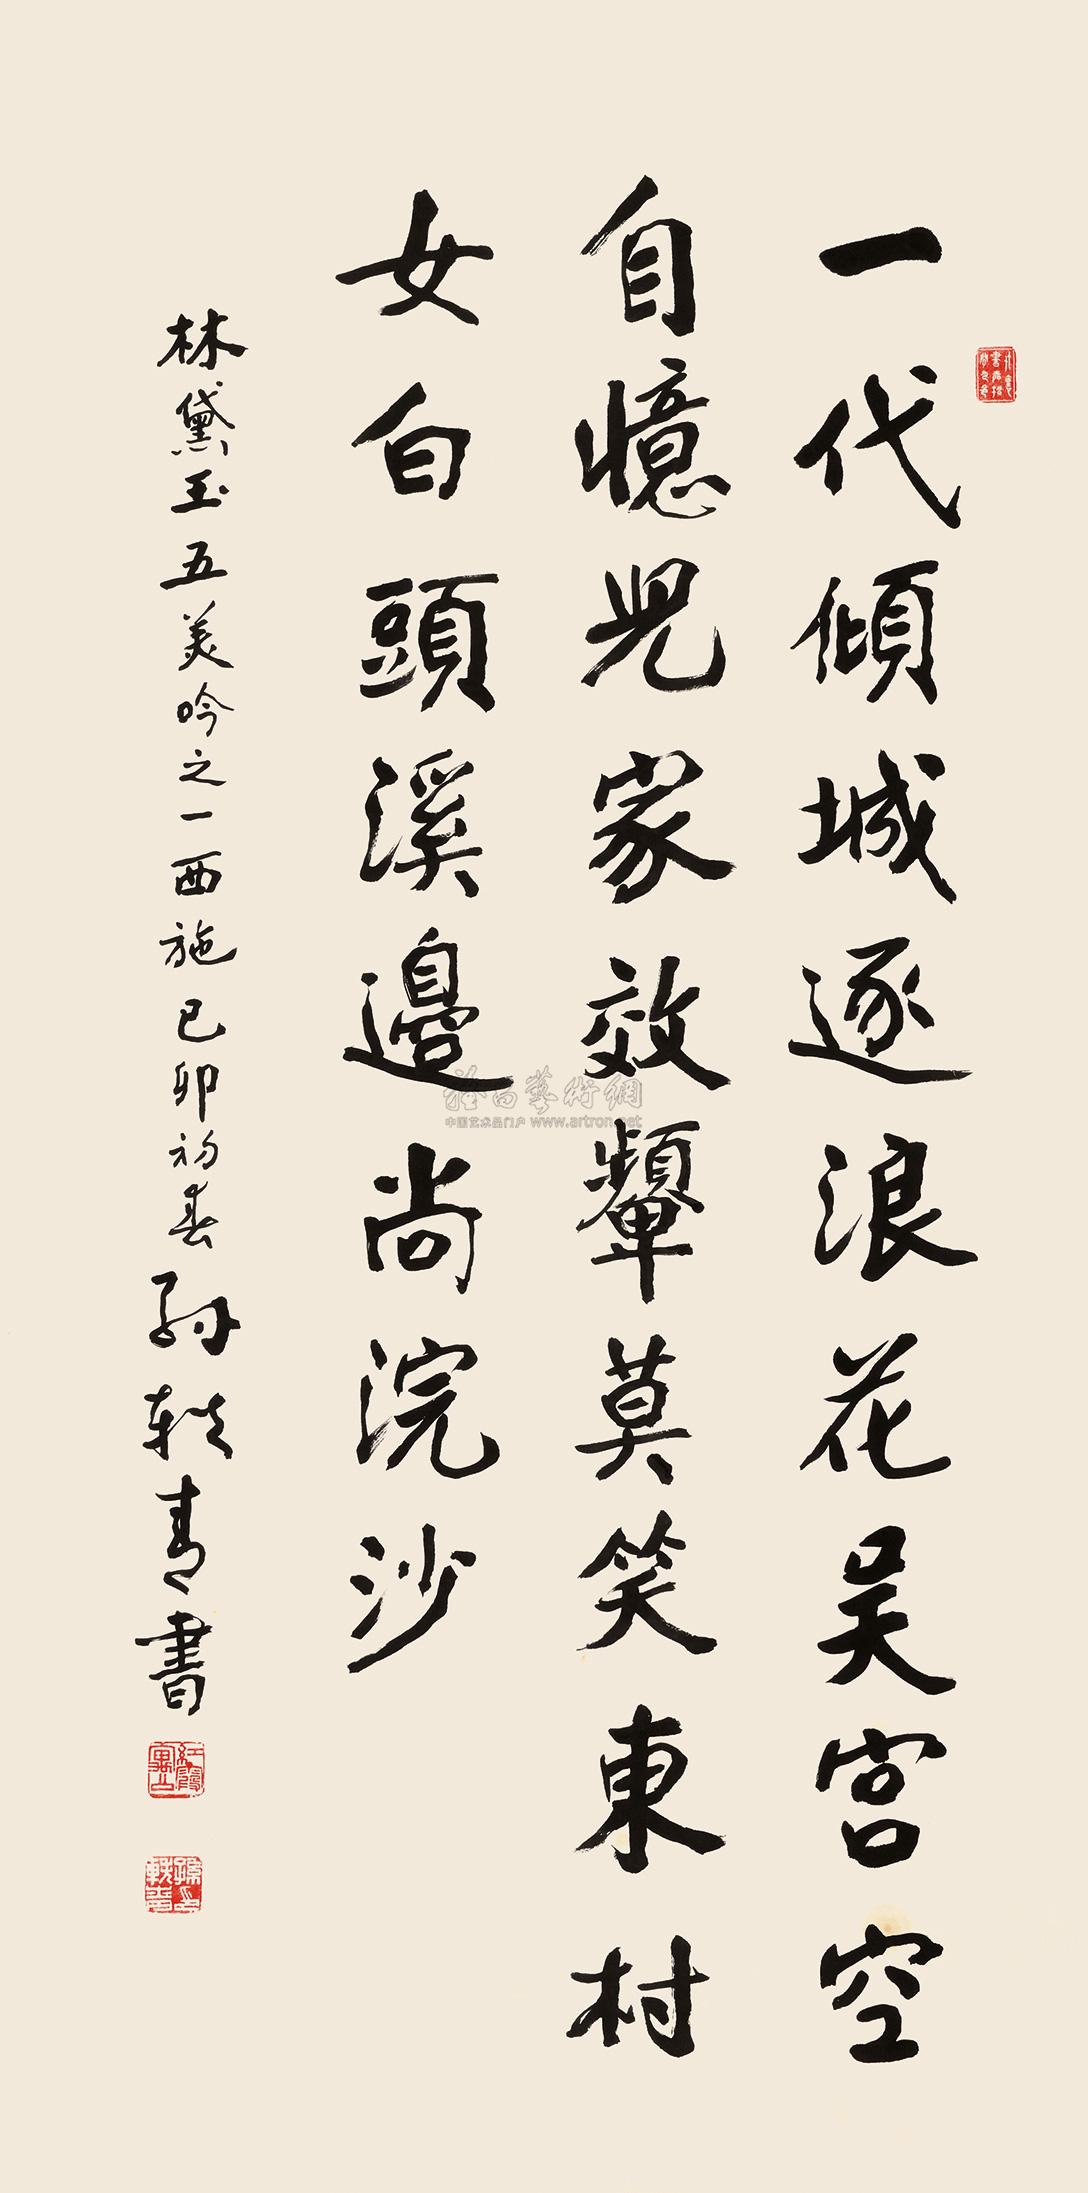 一代傾城逐浪花吳宮空
自憶兒家效顰莫笑東村
女白頭溪邊尚浣沙
林黛玉五美吟之一西施己卯初春孫軼青書
中国艺术品门户 www.artron.net